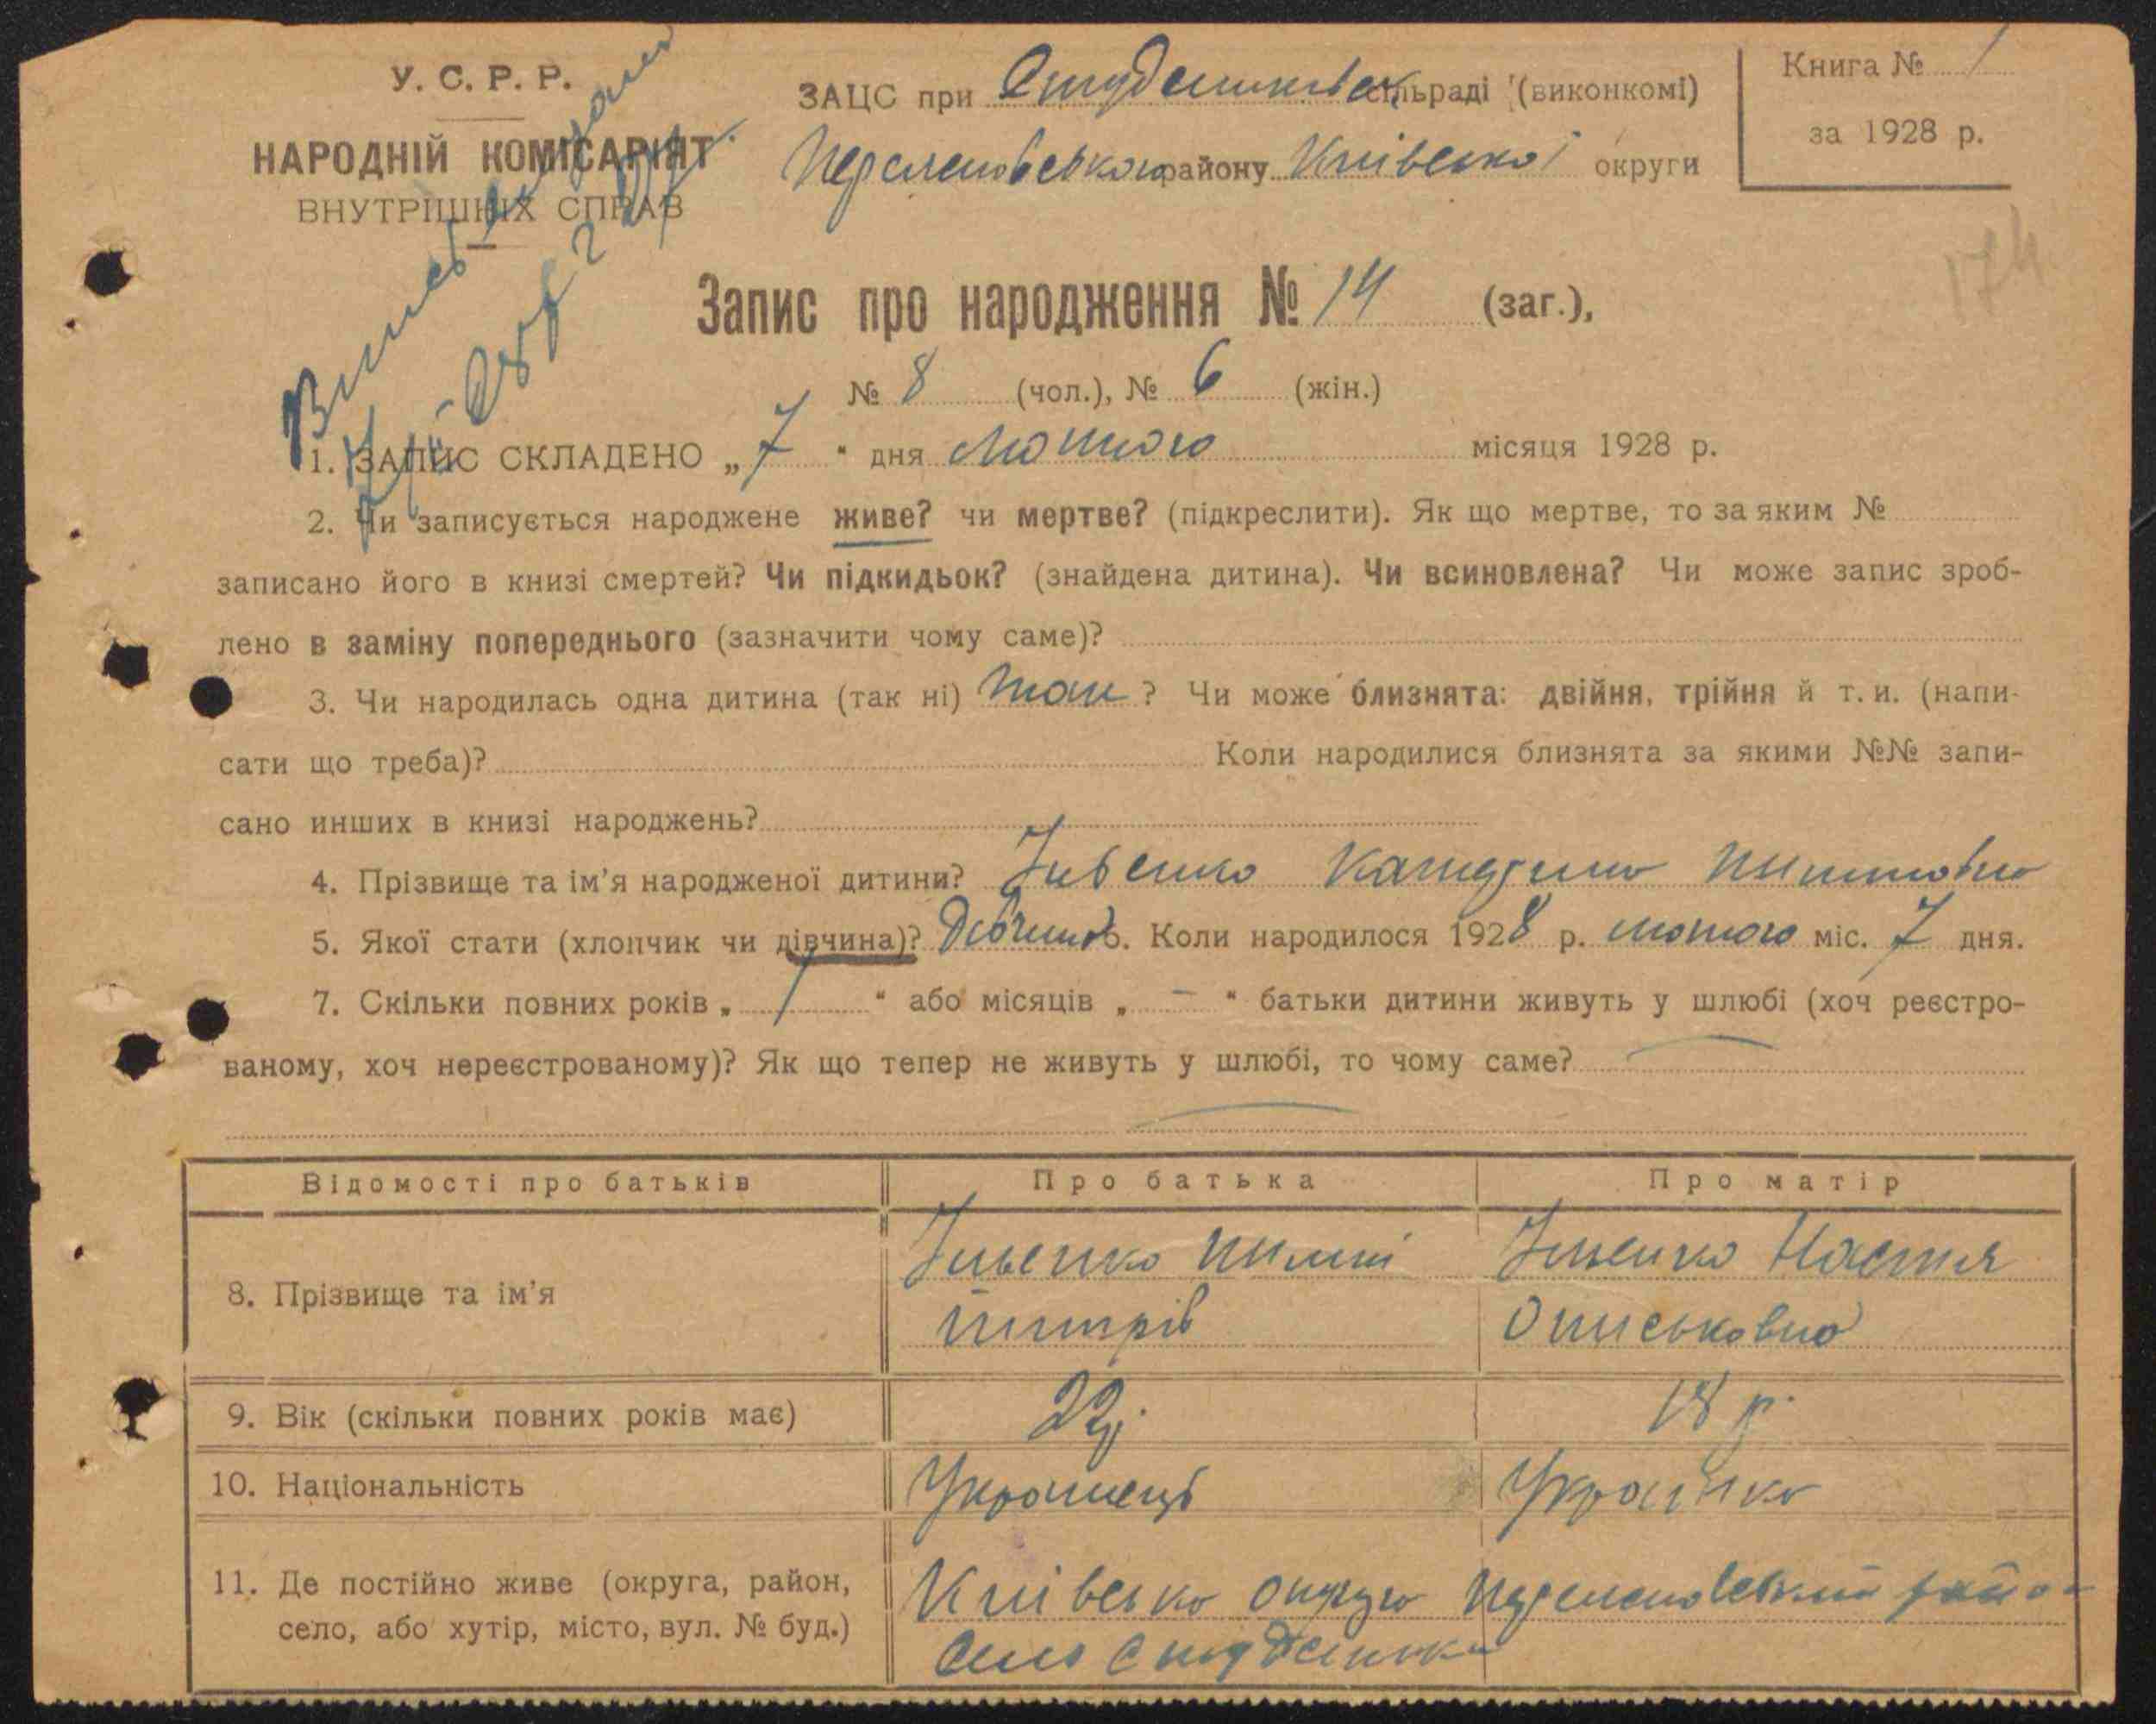 У. С. Р. Р.
НАРОДНІЙ КОМІСАРІЯТ
ВНУТРІШНІХ СПРАВ
ЗАЦС при Студениківск сільраді (виконкомі)
району Київської округи
Книга № 1
за 1928 р.
174
Запис про народження № 14 (заг.),
№ 8 (чол.), № 6 (жін.)
1. ЗАПИС СКЛАДЕНО „7“ дня лютого місяця 1928 р.
2. Чи записується народжене живе? чи мертве? (підкреслити). Як що мертве, то за яким №
записано його в книзі смертей? Чи підкидьок? (знайдена дитина). Чи всиновлена? Чи може запис зроб-
лено в заміну попереднього (зазначити чому саме)?
3. Чи народилась одна дитина (так ні) так? Чи може близнята: двійня, трійня й т. и. (напи-
сати що треба)? Коли народилися близнята за якими №№ запи-
сано инших в книзі народжень?
4. Прізвище та ім’я народженої дитини? Катерина
5. Якої стати (хлопчик чи дівчина)? Дівчина 6. Коли народилося 1928 р. лютого міс. 7 дня.
7. Скільки повних років „1“ або місяців „—“ батьки дитини живуть у шлюбі (хоч реєстро-
ваному, хоч нереєстрованому)? Як що тепер не живуть у шлюбі, то чому саме?
Відомості про батьків Про батька Про матір
8. Прізвище та ім’я Настя
9. Вік (скільки повних років має) 22р. 18 р.
10. Національність Українець Українка
11. Де постійно живе (округа, район, Київська округа
село, або хутір, місто, вул. № буд.) село Студеники